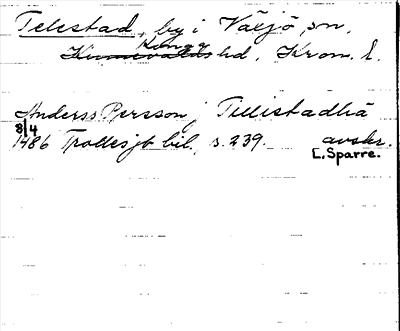 Telestad, by i Växjö sn,
Konga
Kinnevalds hd, Kron. l.
Anderss Persson j Tillistadha
8/4
1486 Trollesjö bil. s. 239. avskr.
L. Sparre.